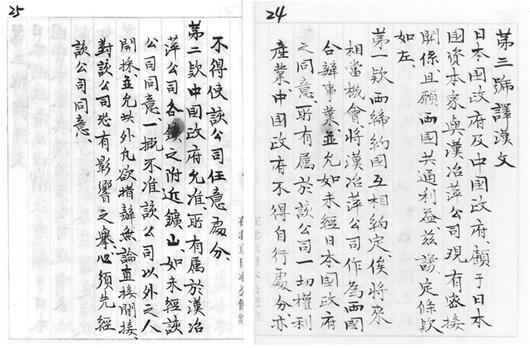 24
第三號譯漢文
日本国政府及中国政府、顧于日本
国資本家與漢冶萍公司現有密接
關係且願両国共通利益、茲議定條款
如左、
第一款両締約国互相約定俟將來
相當機會將漢冶萍公司作為両国
合辦事業並允如未經日本国政府
之同意、所有属於該公司一切權利
產業、中国政府不得自行處分亦
25
不得使該公司任意處分、
第二款中国政府允准所有属於漢冶
萍公司各鑛之附近鑛山如未經該
公司同意、一概不准該公司以外之人
開採、並允此外凡欲措辦無論直接間接
對該公司恐有影響之舉必須先經
該公司同意、